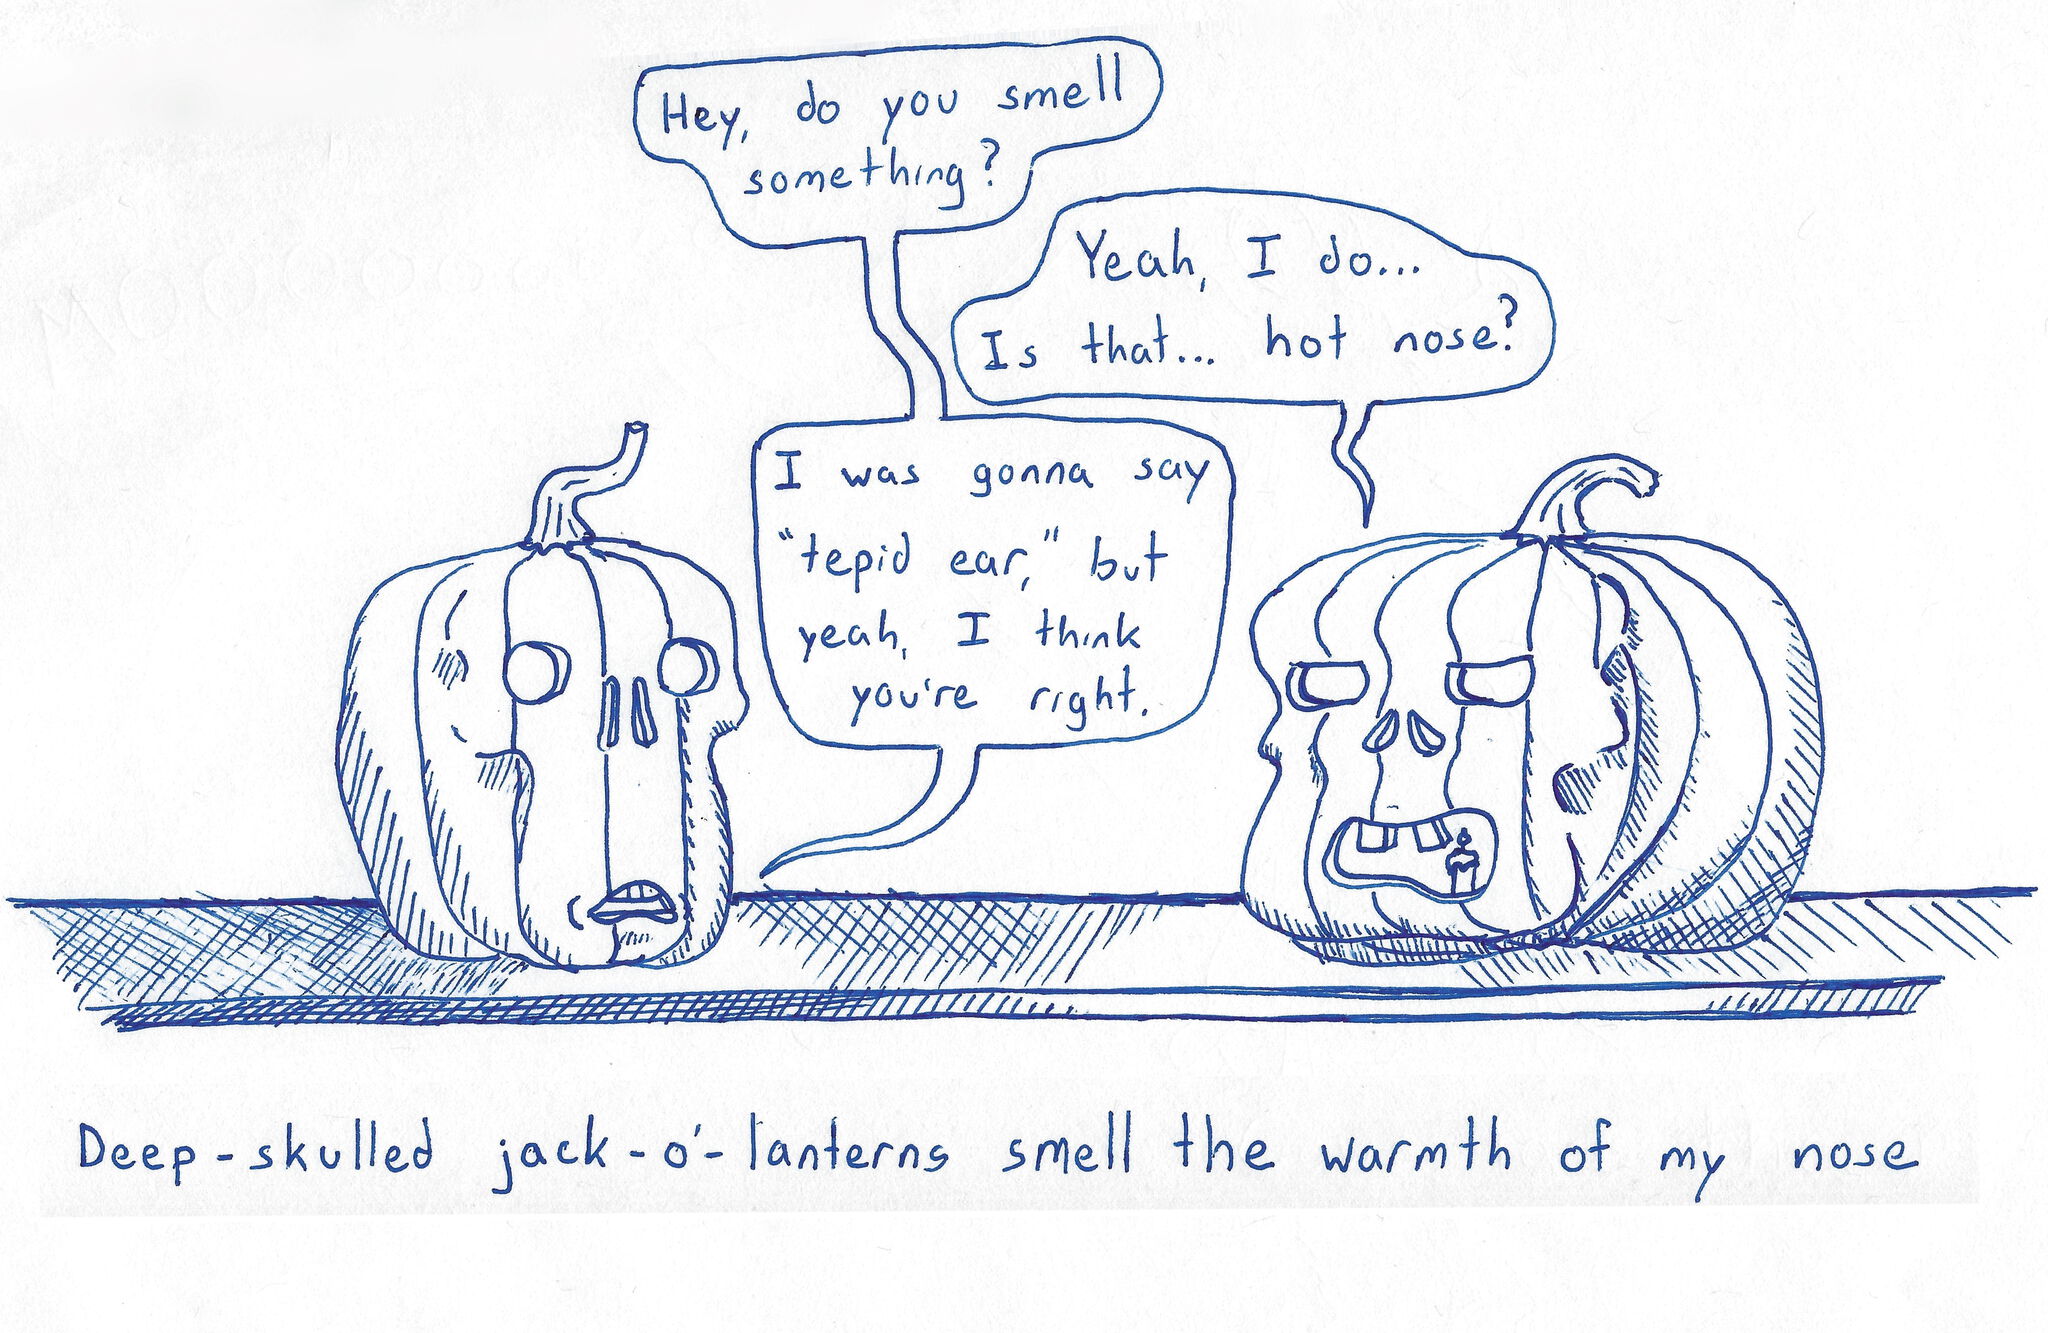 Hey, do you smell
something?
Yeah, I do...
Is that... hot nose?
I was gonna say
"tepid ear," but
yeah, I think
you're right.
Deep-skulled jack-o'-lanterns smell the warmth of my nose